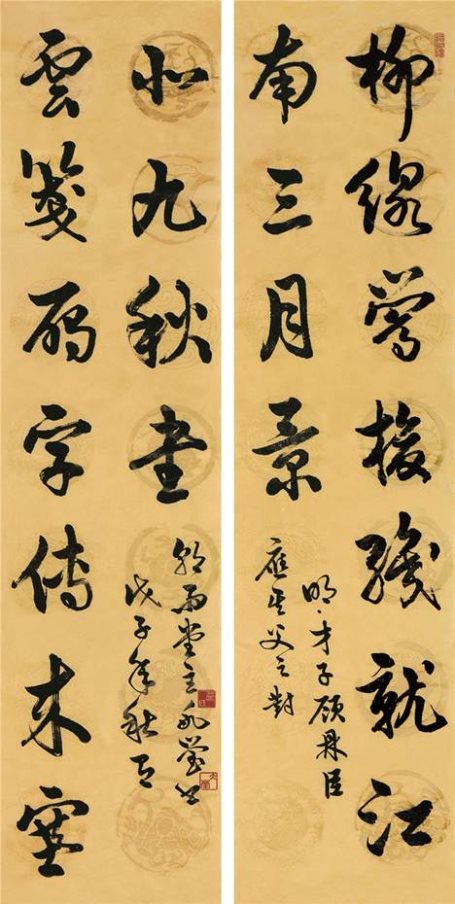 柳線鶯梭織就江
南三月景
明·才子顧鼎臣
應其父之對
雲箋雁字傳來塞
北九秋書
雨堂主永瑩書
戊子年秋